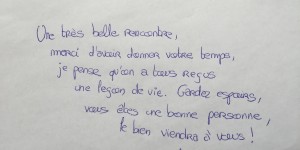 Une très belle rencontre,
merci d'avoir donner votre temps,
je pense qu'on a tous reçus
une leçon de vie. Gardez espoirs,
vous êtes une bonne personne,
le bien viendra à vous !